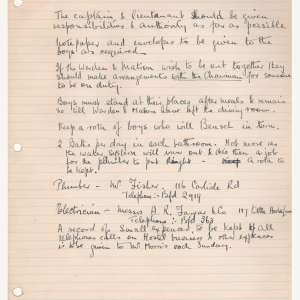 The captain & lieutenant should be given
responsibilities & authority as far as possible
Notepaper and envelopes to be given to the
boys as required.
If the Warden & Matron wish to be out together they
should make arrangements with the Chairman for someone
to be on duty.
Boys must stand at their places after meals & remain
so till Warden & Matron have left the dining room.
Keep a rota of boys who Bensch in turn.
2 Baths per day in each bathroom. Not more as
the water will run out & it is then a job
for the plumber to put right - a rota to
be kept.
Plumber - Mr Fisher, 116 Carlisle Rd
Telephone: Bdfd 2919
Electrician - Messrs A. R. & Co 117 Little
Telephone: Bdfd 363
A record of Small expenses, to be kept of all
telephone calls on Hostel business & other expenses
to be given to Mr Morris each Sunday.